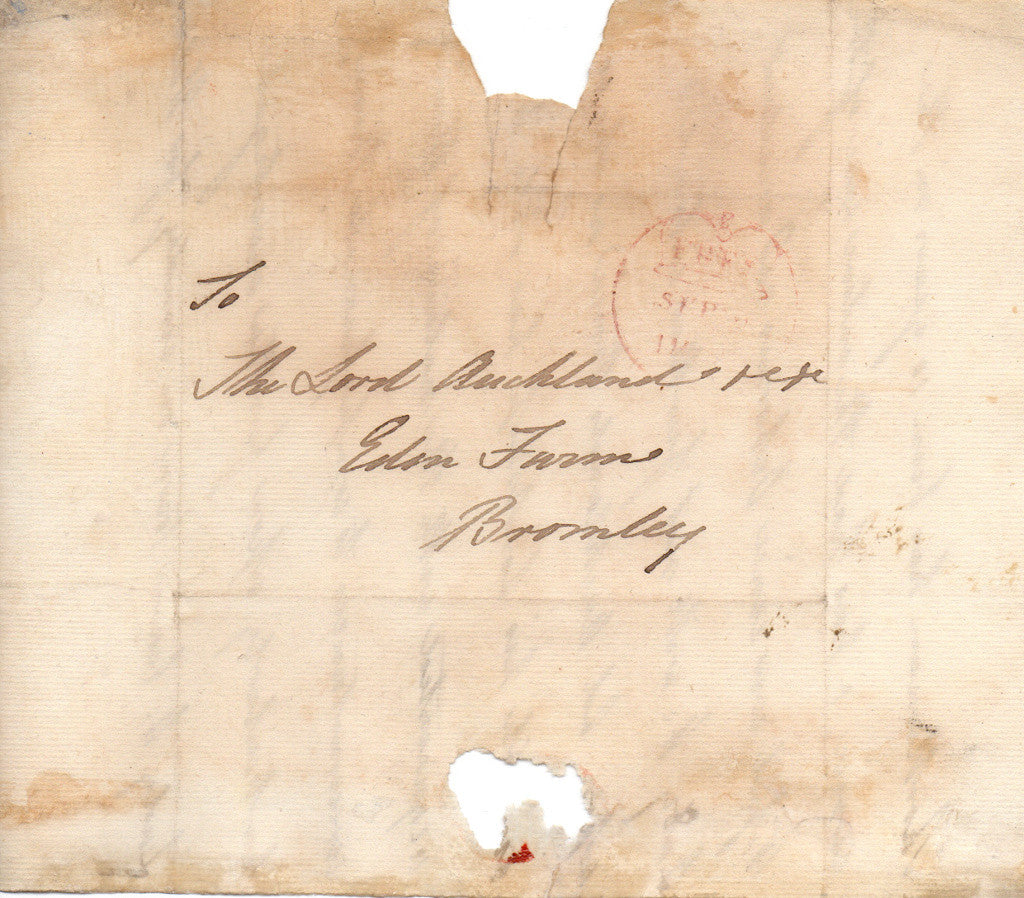 To
The Lord Auckland &c &c
Eden Farm
Bromley
FREE
SEP